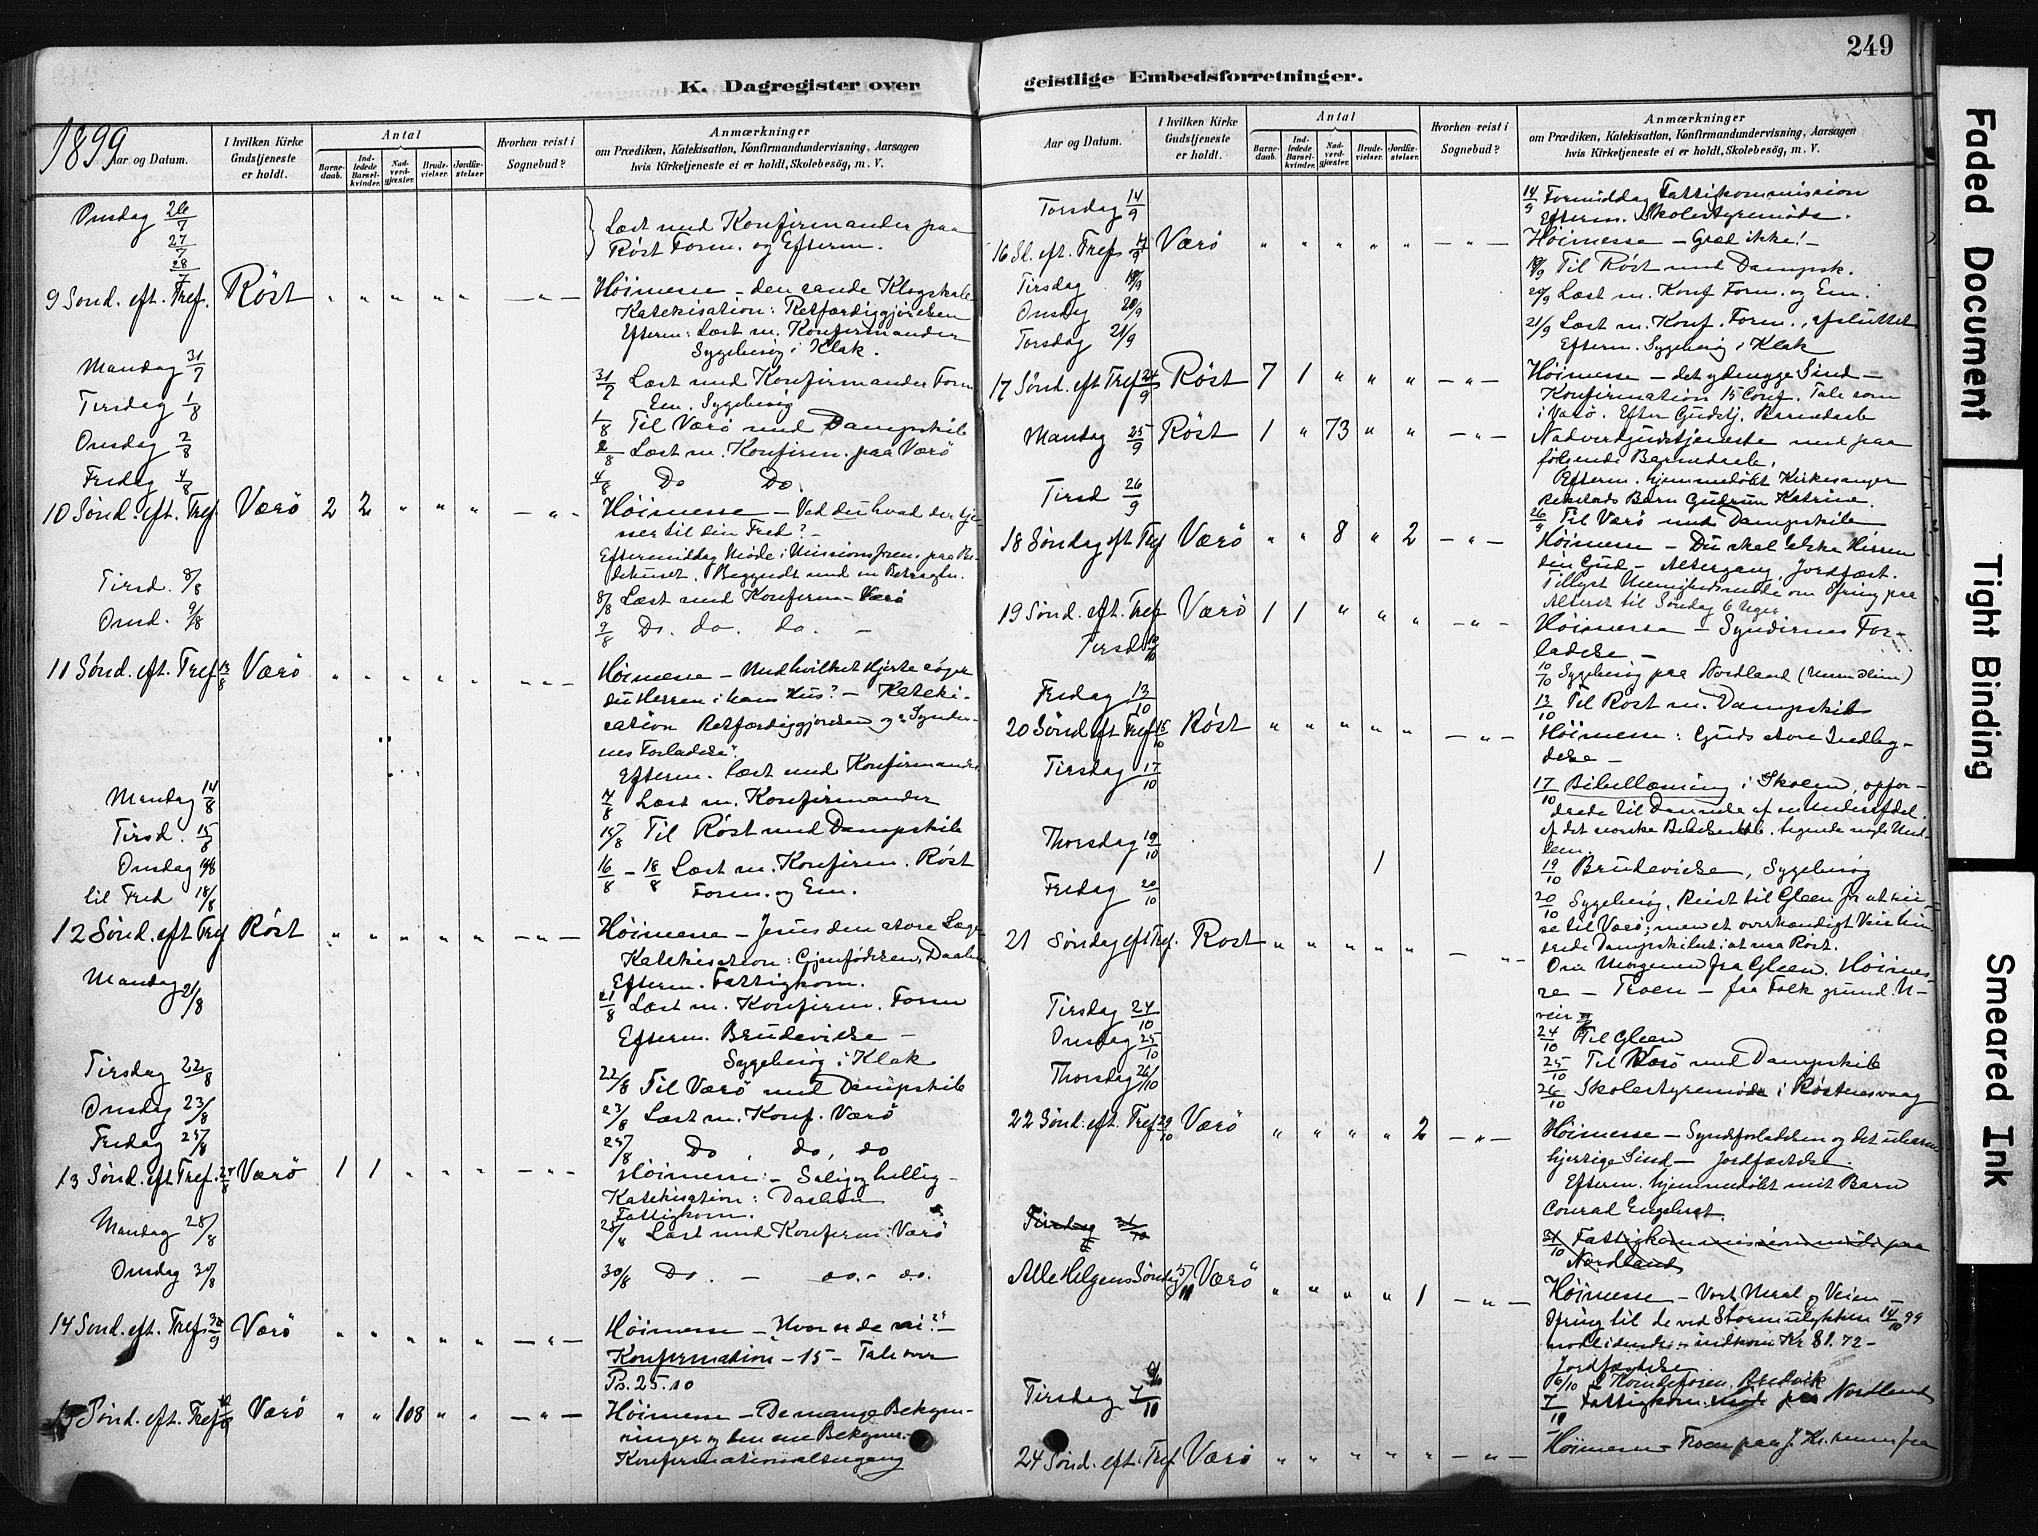 249
K. Dagregister over
geistlige Embedsforretninger.
1899
Aar og Datum.
I hvilken Kirke Gudstjeneste er holdt.
Antal
Barnedaab.
Indledede Barselkvinder.
Nadverdgjæster.
Brudevielser.
Jordfæstelser.
Hvorhen reist i Sognebud?
Anmærkninger
om Prædiken, Katekisation, Konfirmandundervisning, Aarsagen
hvis Kirketjeneste ei er holdt, Skolebesög, m. V.
Onsdag 26/7
27/7
28/7
Læst med Konfirmander paa
Røst Form. og Efterm.
9 Sönd. eft. Tref. Röst " " " " " — " — Höimesse — den sande Klogskab
Katekisation: Retfærdiggjörelsen
Efterm: Læst m. Konfirmander
Sygebesög i Klak.
Mandag 31/7
31/7 Læst med Konfirmander Form
Em. Sygebesög
Tirsdag 1/8
1/8 Til Værö med Dampskib
Onsdag 2/8
2/8 Læst m. Konfirm. paa Værö
Fredag 4/8
4/8 Do Do
10 Sönd. eft. Tref. Værö 2 2 " " " — " — Höimesse — Ved du hvad der tje-
ner til din Fred? —
Eftermiddag Möde i Missionsforen. paa Be-
dehuset. Begyndt med en Betragtn.
Tirsd. 8/8
8/8 Læst med Konfirm — Værö
Onsd. 9/8
9/8 Do. do. do. —
11 Sönd. eft. Tref 13/8 Værö " " " " " " — " — Höimesse — Med hvilket Hjerte söger
du Herren i hans Hus? — Kateki-
sation Retfærdiggjörelsen og "Synder-
nes Forladelse"
Efterm. læst med Konfirmander
Mandag 14/8
Læst m. Konfirmander
Tirsd. 15/8
15/8 Til Röst med Dampskib
Onsdag 16/8
til Fred 18/8
16/8 — 18/8 Læst m. Konfirm. Röst
Form. og Em.
12 Sönd. eft Tref Röst " " " " " — " — Höimesse — Jesus den store Læge
Katekisation: Gjenfödelsen, Daaben
Efterm. Fattigkom.
Mandag 21/8
21/8 Læst m. Konfirm. Form
Efterm. Brudevielse —
Sygebesög i Klak
Tirsdag 22/8
22/8 Til Værö med Dampskib
Onsdag 23/8
23/8 Læst m. Konf. Værö
Fredag 25/8
25/8 Do , do, do
13 Sönd. eft Tref. 27/8 Værö 1 1 " " " — " — Höimesse: — Salig og hellig —
Katekisation: Daaben
Fattigkom.
Mandag 28/8
28/8 Læst med Konfirm. Værö
Onsdag 30/8
30/8 Do. — do. — do.
14 Sönd. eft. Tref. 3/9 Værö " " " " " — " — Höimesse — "Hvor er de ni?"
Konfirmation — 15 — Tale over
Ps. 25.10
15 Sönd. eft. Tref. 10/9 Værö " " 108 " " — " — Höimesse — De mange Bekym-
ringer og den ene Bekymr.
Konfirmationsaltergang
Aar og Datum.
I hvilken Kirke Gudstjeneste er holdt.
Antal
Barnedaab.
Indledede Barselkvinder.
Nadverdgjæster.
Brudevielser.
Jordfæstelser.
Hvorhen reist i Sognebud?
Anmærkninger
om Prædiken, Katekisation, Konfirmandundervisning, Aarsagen
hvis Kirketjeneste ei er holdt, Skolebesög, m. V.
Torsdag 14/9
14/9 Formiddag Fattigkommission
Efterm. Skolestyremöde.
16 S. eft. Tref. 17/9 Værö " " " " " — " — Höimesse — Græd ikke! —
Tirsdag 19/9
19/9 Til Röst med Dampsk.
Onsdag 20/9
20/9 Læst m. Konf Form. og Em.
Torsdag 21/9
21/9 Læst m. Konf. Form., afsluttet
Efterm. Sygebesög i Klak
17 Sönd. eft Tref 24/9 Röst 7 1 " " " — " — Höimesse — det ydmyge Sind —
Konfirmation 15 Conf. Tale som
i Værö. Efter Gudstj. Barnedaab
Mandag 25/9 Röst 1 " 73 " " — " — Nadverdgudstjeneste med paa
fölgende Barnedaab.
Efterm. hjemmedöbt Kirkesanger
Barn Gudrun Katrine.
Tirsd 26/9
26/9 Til Værö med Dampskib
18 Söndag eft Tref Værö " " 8 " 2 — " — Höimesse — Du skal elske Herren
din Gud — Altergang. Jordfæst.
Tillyst Menighedsmöde om Ofring paa
Alteret til Söndag 6 Uger
19 Sönd. eft. Tref Værö 1 1 " " " — " — Höimesse — Syndernes For-
ladelse —
Tirsd 10/10
10/10 Sygebesög paa Nordland
Fredag 13/10
13/10 Til Röst m. Dampskib
20 Sönd eft Tref 15/10 Röst " " " " " — " — Höimesse: Guds store Indby-
delse —
Tirsdag 17/10
17/10 Bibellæsning i Skolen, opfor-
drede til Dannelse af en Underafdel.
af det norske Bibelselskab, tegnede nogle Med-
lem.
Thorsdag 19/10 1
19/10 Brudevielse, Sygebesög
Fredag 20/10
20/10 Sygebesög. Reist til Gleen for at rei-
se til Værö; men et overhændigt Veir hin-
drede Dampskibet i at naa Röst.
21 Söndag eft Tref. Röst " " " " " — " Om Morgenen fra Gleen. Höimes-
se — Troen — faa Folk grund. U-
veir
Tirsdag 24/10
24/10 Til Gleen
Onsdag 25/10
25/10 Til Værö med Dampskib
Thorsdag 26/10
26/10 Skolestyremöde i Röstnesvaag
22 Sönd. eft. Tref 29/10 Værö " " " " 2 — " — Höimesse — Syndsforladelsen og det ubarm-
hjertige Sind — Jordfæstelse.
Efterm. hjemmedöbt mit Barn
Conrad Engebret.
Tirsdag 31/10
31/10 Fattigkommissionsmöde paa
Nordland
Alle Helgens Söndag 5/11 Værö " " " " 1 — " — Höimesse — Vort Maal og Veien —
Ofring til de ved Stormulykken 14/10 99
nödlidende — indkom Kr 81.72 —
Jordfæstelse
6/10
6/10 I Kvindeforen. Bredvik
Tirsdag 7/10
7/11 Fattigkom. möde paa Nordland
24 Sönd. eft. Tref Værö " " " " " — " — Höimesse — Troen paa J. Kr.
Faded Document
Tight Binding
Smeared Ink